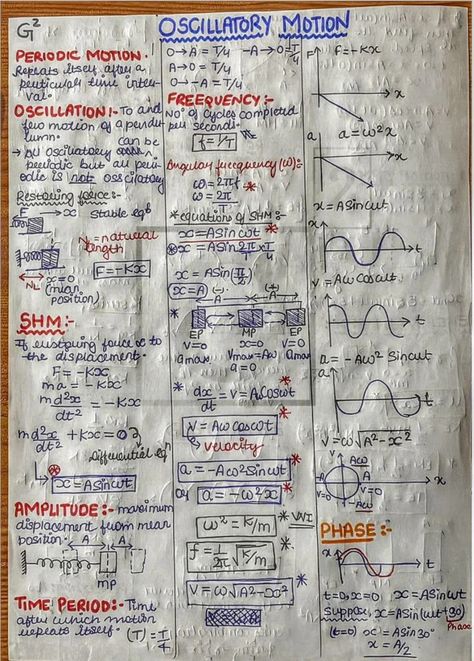 G²
OSCILLATORY MOTION
PERIODIC MOTION
Repeats itself after a
particular time inter-
val.
OSCILLATION:- To and
fro motion of a pendu
lum.
→ All oscillatory can be
periodic but all peri-
odic is not oscillatory
Restoring force:-
F → x stable eqb
N = natural
length
NL x=0
(mean
position)
F=-Kx
SHM:-
If restoring force ∝ to
the displacement.
F = -Kx
ma = -Kx
md²x/dt² = -Kx
md²x/dt² + Kx = 0
Differential eqn
x = ASinωt
AMPLITUDE:- maximum
displacement from mean
position.
A A
mp
TIME PERIOD:- Time
after which motion
repeats itself. (T) = T/4
O→A = T/4 -A→O = T/4
A→O = T/4
O→-A = T/4
FREEQUENCY:-
No of cycles completed
per second:-
f = 1/T
Angular frequency (ω):-
ω = 2πf
ω = 2π/T
*equations of SHM:-
x = ASinωt
x = ASin 2π/T × T/4
x = ASin(π/2)
x = A
(-) (+)
A A
EP MP EP
v=0 x=0 v=0
amax Vmax=Aω amax
a=0
dx/dt = v = Aωcosωt
v = Aω cosωt
velocity
a = -Aω²Sinωt
or a = -ω²x
ω² = K/m VVI
f = 1/2π √K/m
v = ω√A²-x²
F f=-Kx
x
a a=ω²x
x
x = ASinωt
t
v = Aωcosωt
t
a = -Aω² Sinωt
t
v = ω√A²-x²
Aω
v=0 v=0
x
Aω
PHASE:-
x
t
t=0, x=0 x=ASinωt
suppose x=ASin(ωt+30)
Phase
(t=0) x = ASin30°
x = A/2